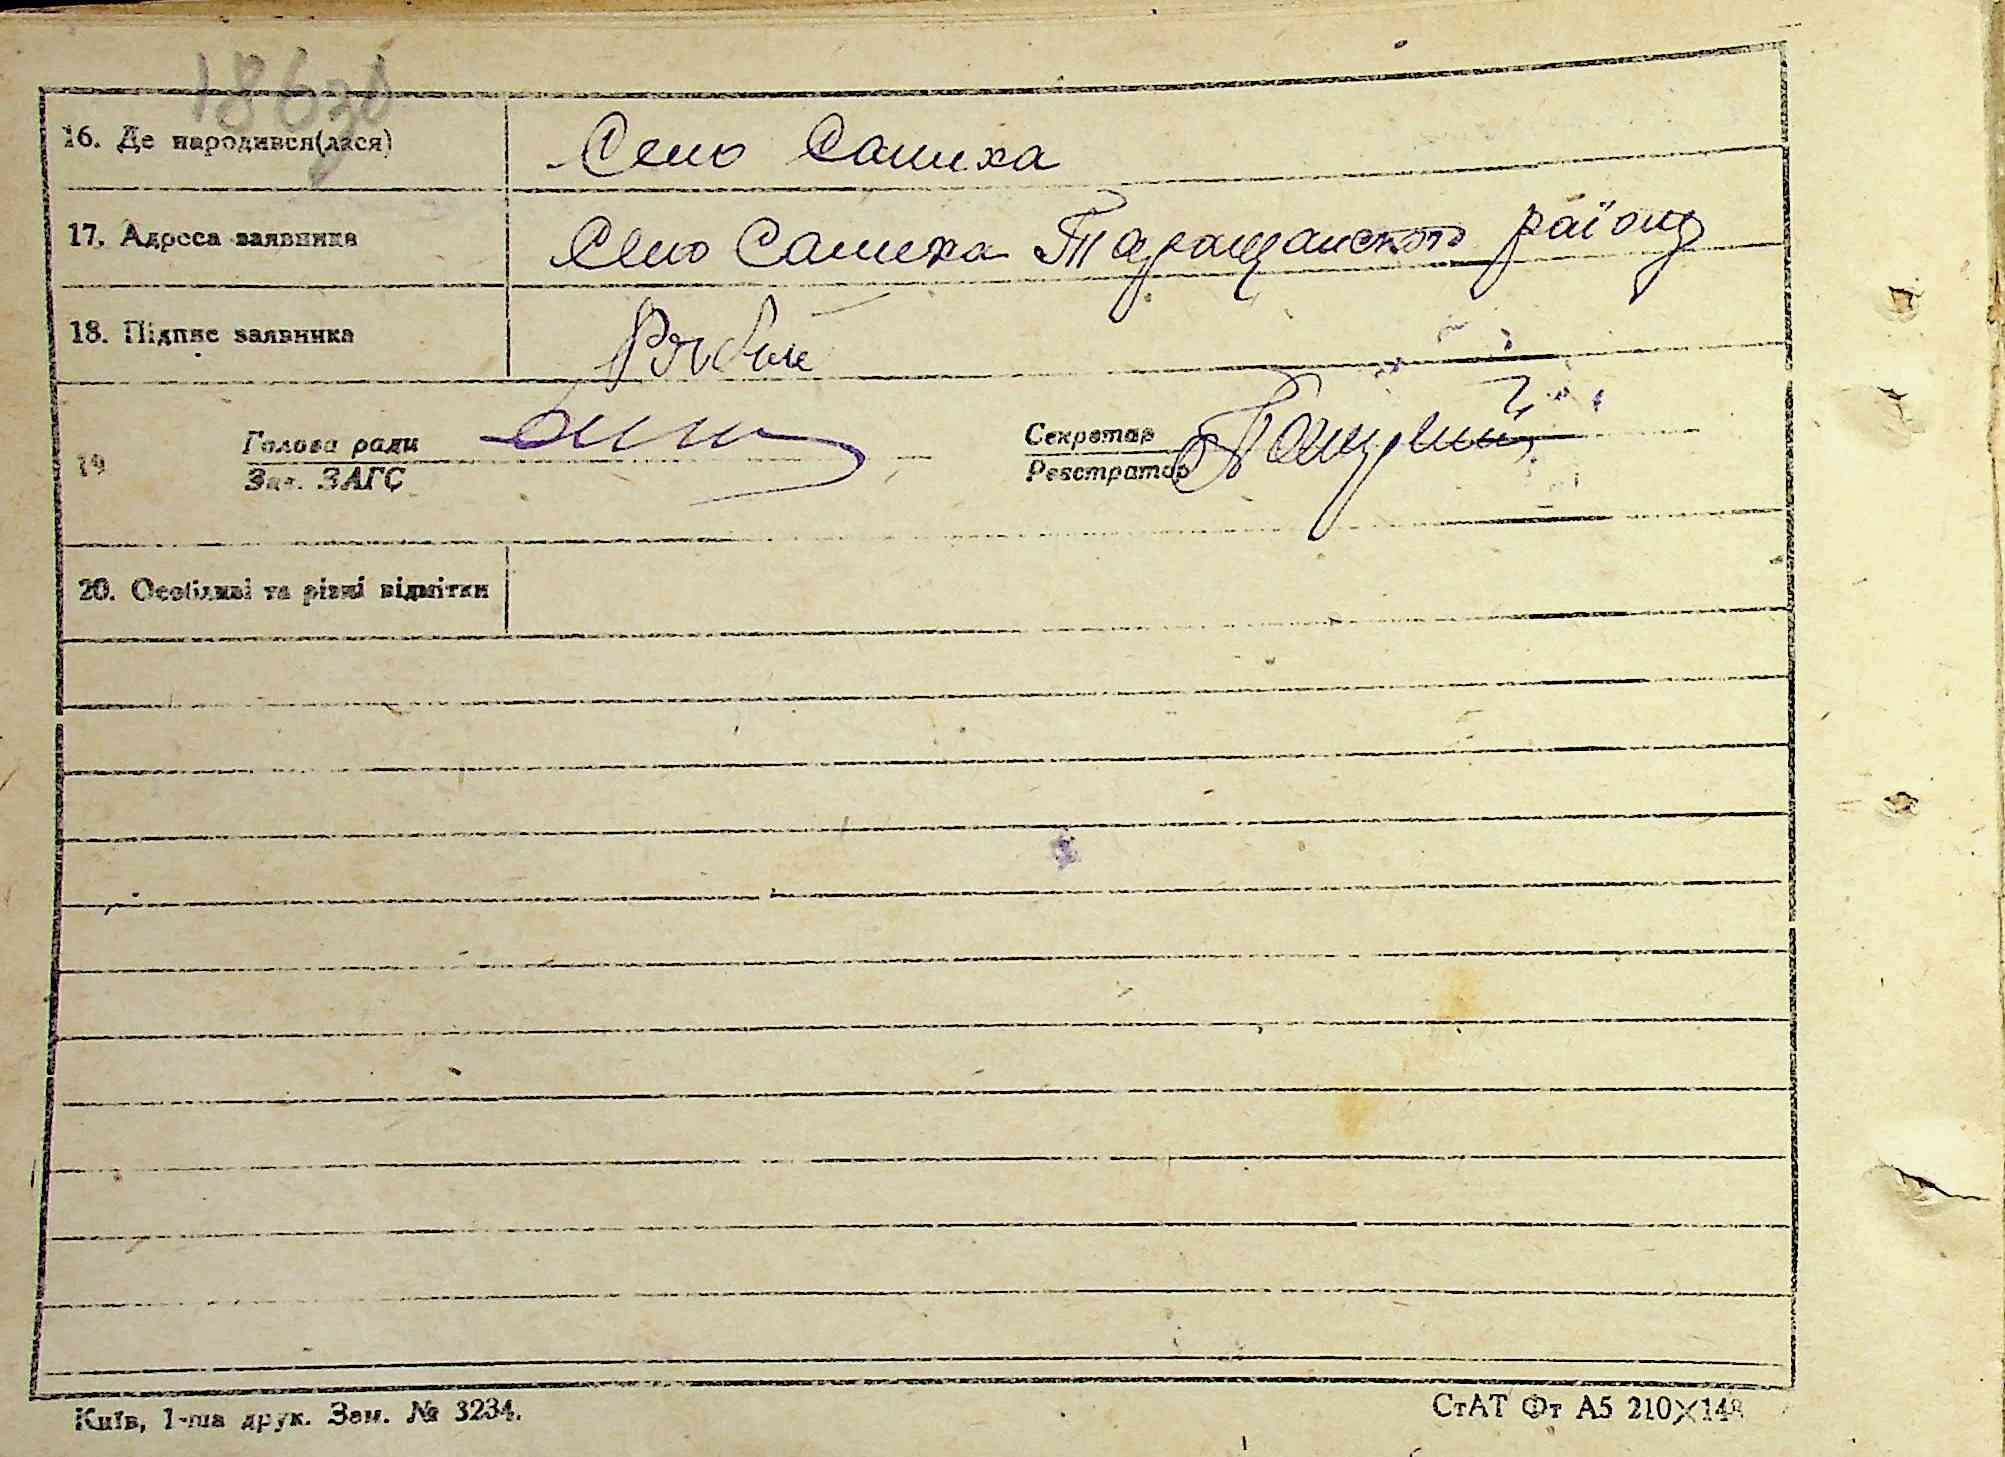 186зв
16. Де народився(лася) Село Салиха
17. Адреса заявника Село Салиха Таращанского району
18. Підпис заявника
19 Голова ради Секретар
Зав. ЗАГС Реєстратор
20. Особливі та різні відмітки
Київ, 1-ша друк. Зам. № 3234. СтАТ Фт А5 210×148